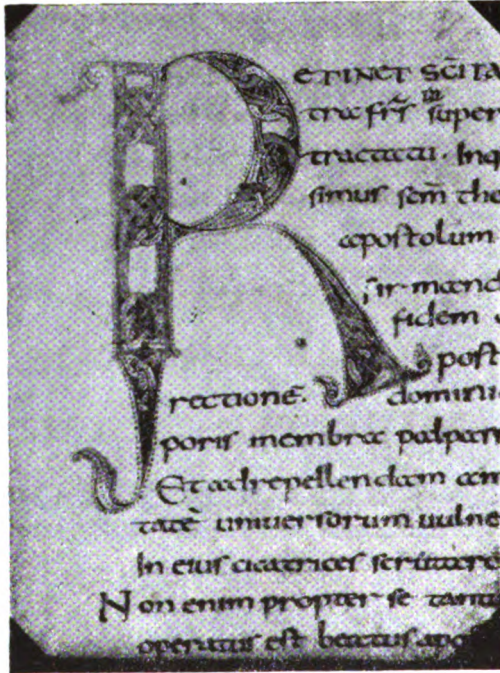 RETINET SC̄I TA
træ fr̄r̄ super
tractatui. Inq
simus scm̄ tho
apostolum
fidem
post
rectionē. domini
poris membra palpass
Et ad repellendam am
tatē universorum uulne
In eius cicatrices
Non enim propter se tantu
operatus est beatus apo